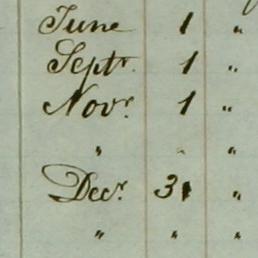 June 1 "
Septr. 1 "
Novr. 1 "
" " "
Decr. 31 "
" " "